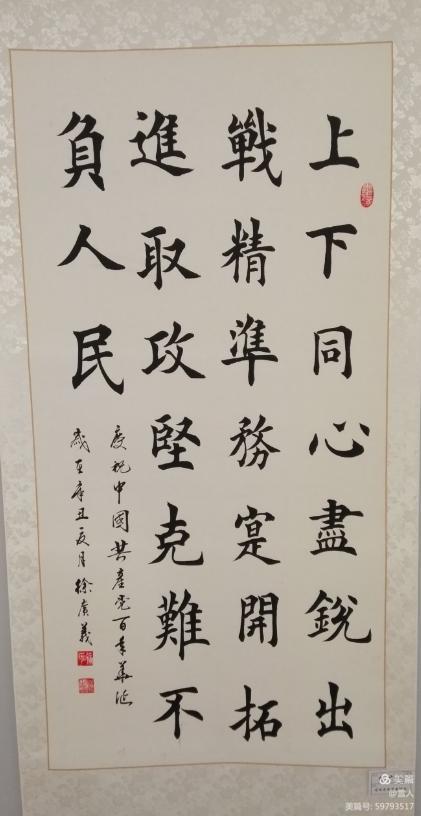 上下同心盡銳出
戰精準務寔開拓
進取攻堅克難不
負人民
慶祝中國共產党百年華誕
歲在辛丑夏月徐广義
美篇
@雪人
美篇号: 59793517